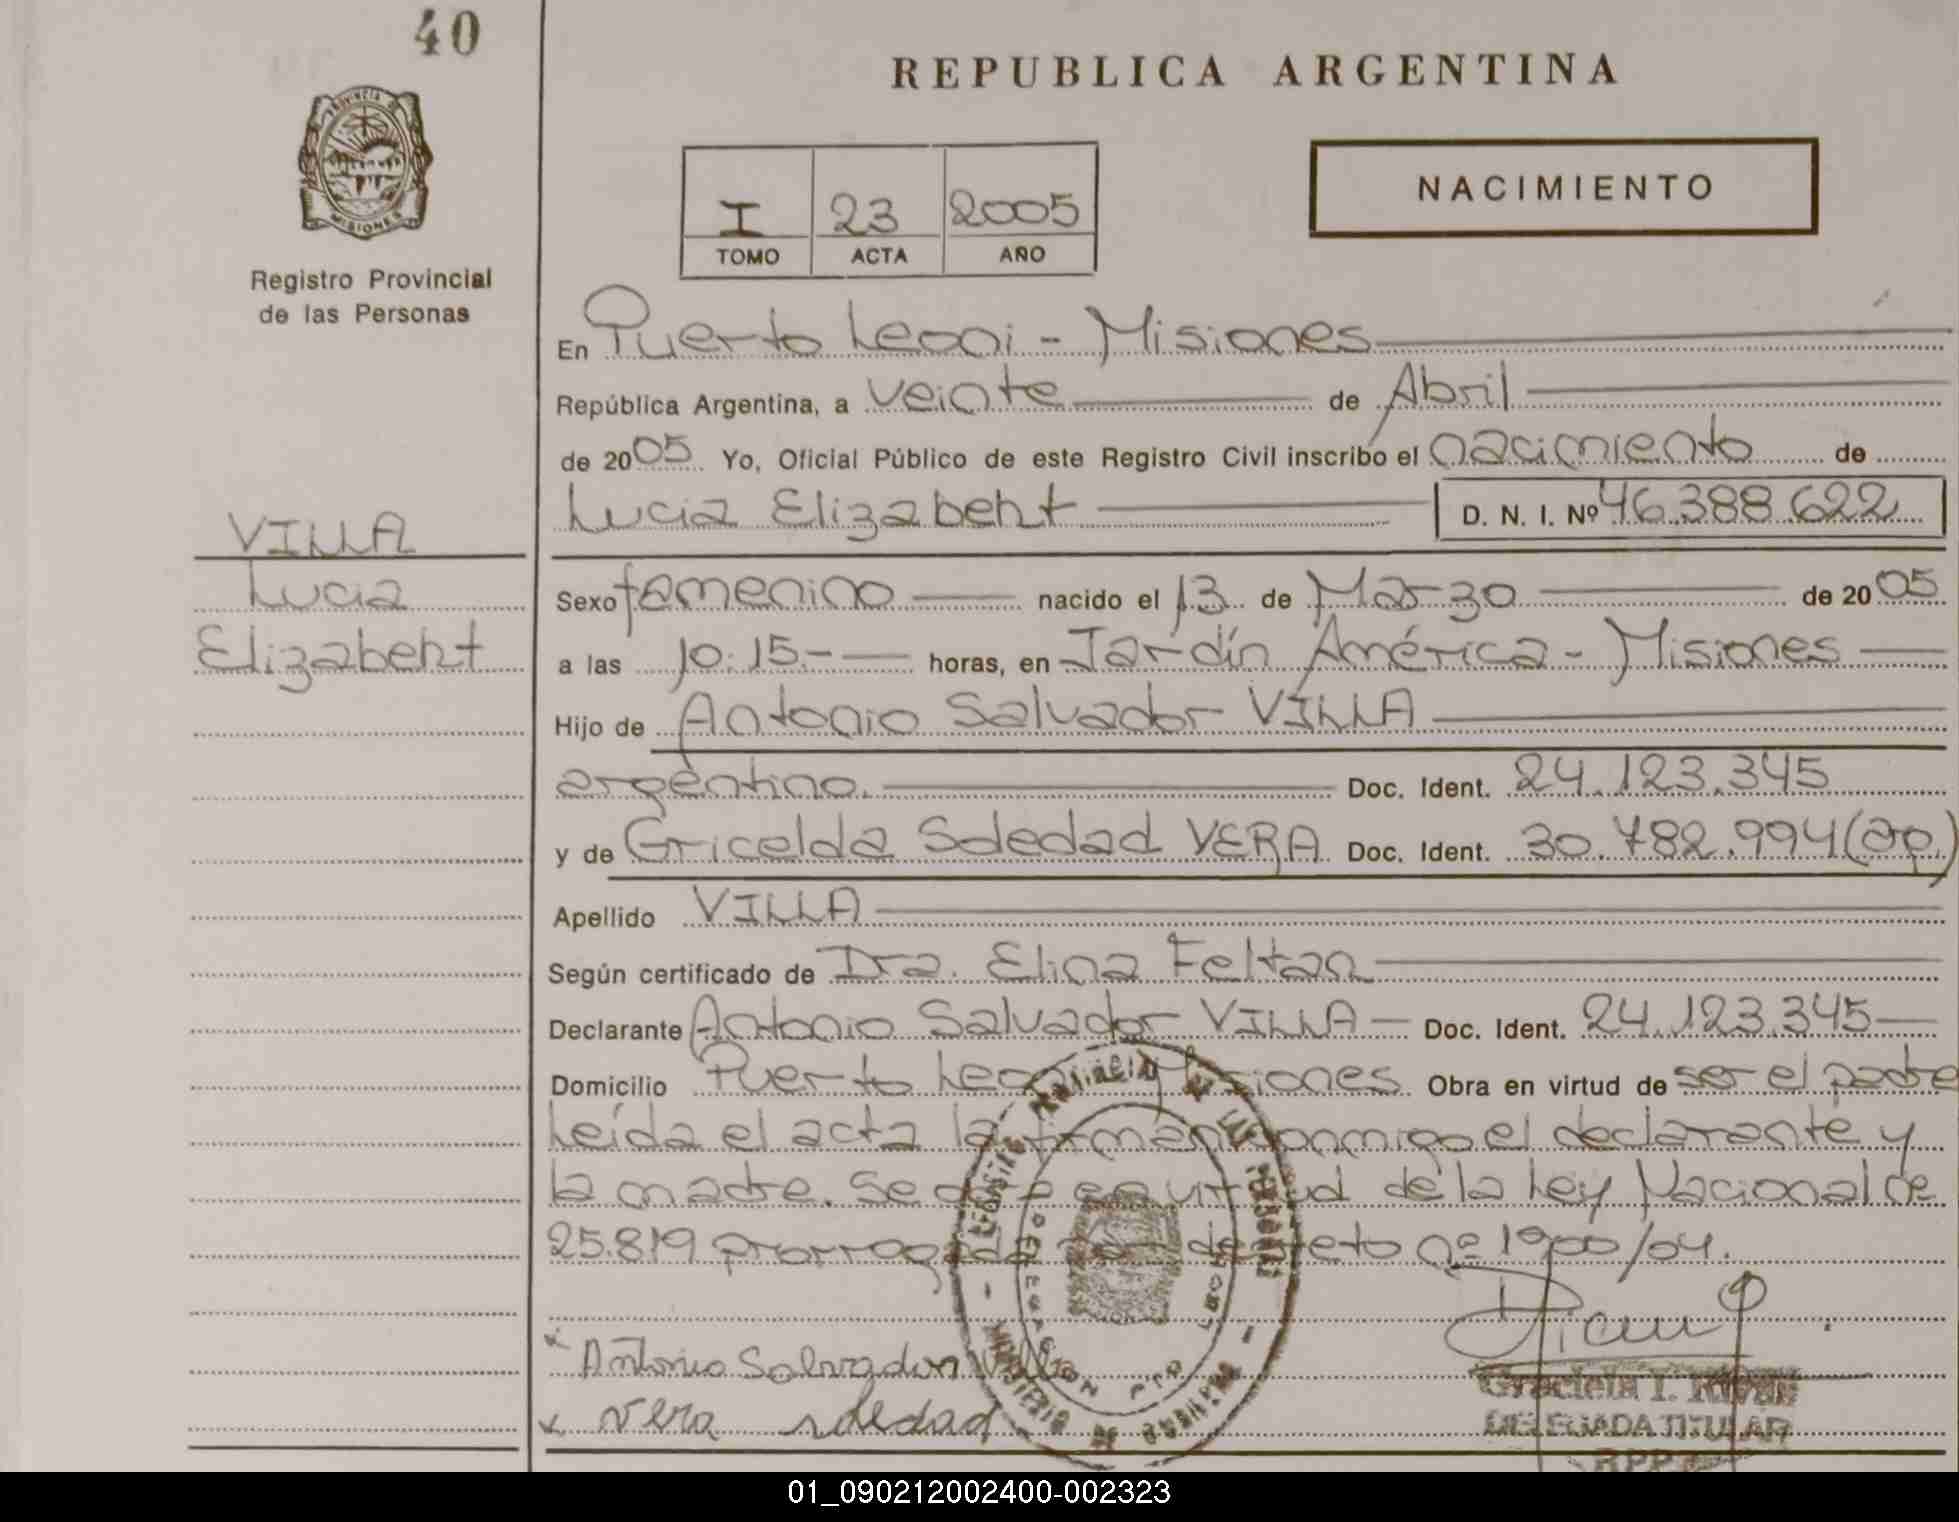 40
REPUBLICA ARGENTINA
PROVINCIA DE
MISIONES
NACIMIENTO
I 23 2005
TOMO ACTA AÑO
Registro Provincial
de las Personas
En Puerto Leoni - Misiones
República Argentina, a veinte de Abril
de 2005 Yo, Oficial Público de este Registro Civil inscribo el nacimiento de
Lucia Elizabeht D. N. I. Nº 46.388.622
VILLA
Lucia
Elizabeht
Sexo femenino nacido el 13 de Marzo de 2005
a las 10:15.- horas, en Jardín América - Misiones
Hijo de Antonio Salvador VILLA
argentino. Doc. Ident. 24.123.345
y de Gricelda Soledad VERA Doc. Ident. 30.782.994 (ap)
Apellido VILLA
Según certificado de Dra. Elina Feltan
Declarante Antonio Salvador VILLA Doc. Ident. 24.123.345
Domicilio Puerto Leoni Misiones Obra en virtud de ser el padre
Leída el acta la firman conmigo el declarante y
la madre. Se en virtud de la Ley Nacional de
25.819 prorrogada por decreto nº 1900/04.
x Antonio Salvador Villa
x Vera Soledad
Graciela I.
DELEGADA TITULAR
RPP
01_090212002400-002323